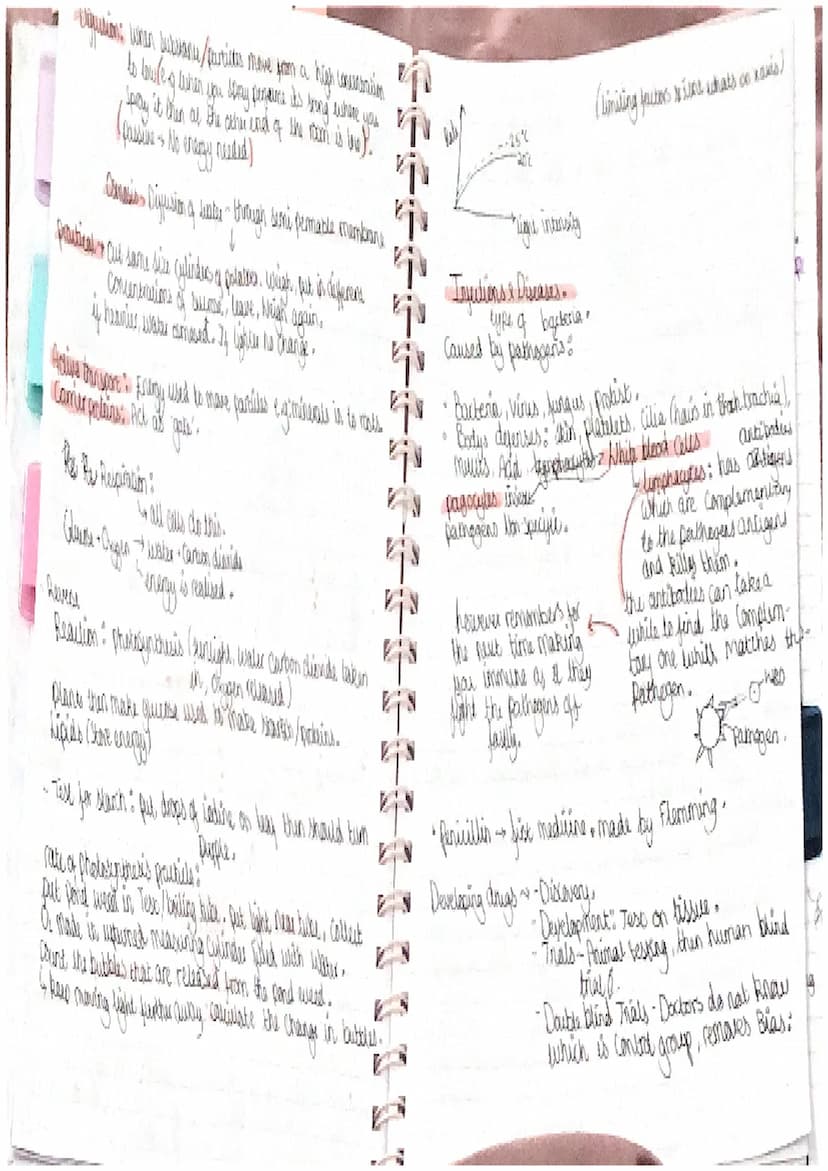 Diffusion: when substance/particles move from a high concentration
to low (e.g when you spray perfume its strong where you
spray it then at the other end of the room is low).
(passive → No energy needed)
Osmosis - Diffusion of water - through semi permable membrane
practical → Cut same size cylinders of potatoes, weigh, put in different
concentrations of sucrose, leave, weigh again.
if heavier, water osmosed. If lighter no change.
Active transport: Energy used to move particles e.g minerals is to roots
Carrier proteins: Act as 'gate'.
Respiration:
↳ all cells do this.
Glucose + Oxygen → water + Carbon dioxide
↳ energy is realised.
Revers
Reaction: photosynthesis (sunlight, water carbon dioxide taken
in, oxygen released)
plants then make glucose used to make starch/proteins.
lipids (store energy)
- Test for starch: put drops of iodine on leaf then should turn
purple.
rate of photosynthesis practicle:
put pond weed in Test/boiling tube, put light near tube, collect
O₂ made in upturned measuring cylinder filled with water.
count the bubbles that are released from the pond weed.
↳ keep moving light further away calculate the change in bubbles.
(limiting factors is line whats on x axis)
Rate
25°C
20°C
light intensity
Infections & Diseases.
type of bacteria.
Caused by pathogens:
• Bacteria, virus, fungus, protist.
• Bodys defenses: skin, platelets, cilia (hairs in trachia),
mucus, Acid, lymphocytes White blood cells
pagocytes
pathogens Non specific.
lymphocytes: has antibodies
which are complementary
to the pathogens antigens
and kills them.
the antibodies can take a
while to find the complem-
tary one whilst matches the
pathogen.
however remembers for
the next time making
you immune as it they
fight the pathogens off
fastly.
WBC
Pathogen.
• Penicillin → first medicine, made by Flemming.
Developing drugs → - Discovery.
- Development: Test on tissue.
- Trials - Animal testing, then human blind
trials.
- Double blind Trials - Doctors do not know
which is control group, removes Bias.